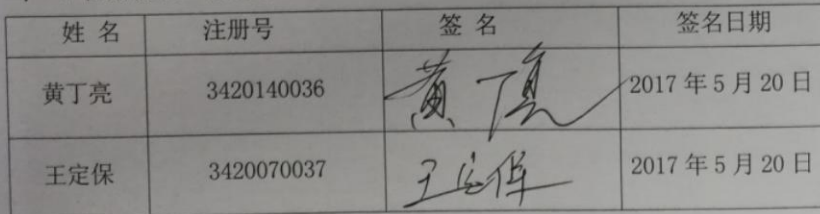 姓 名 注册号 签 名 签名日期
黄丁亮 3420140036 黄丁亮 2017 年 5 月 20 日
王定保 3420070037 王定保 2017 年 5 月 20 日